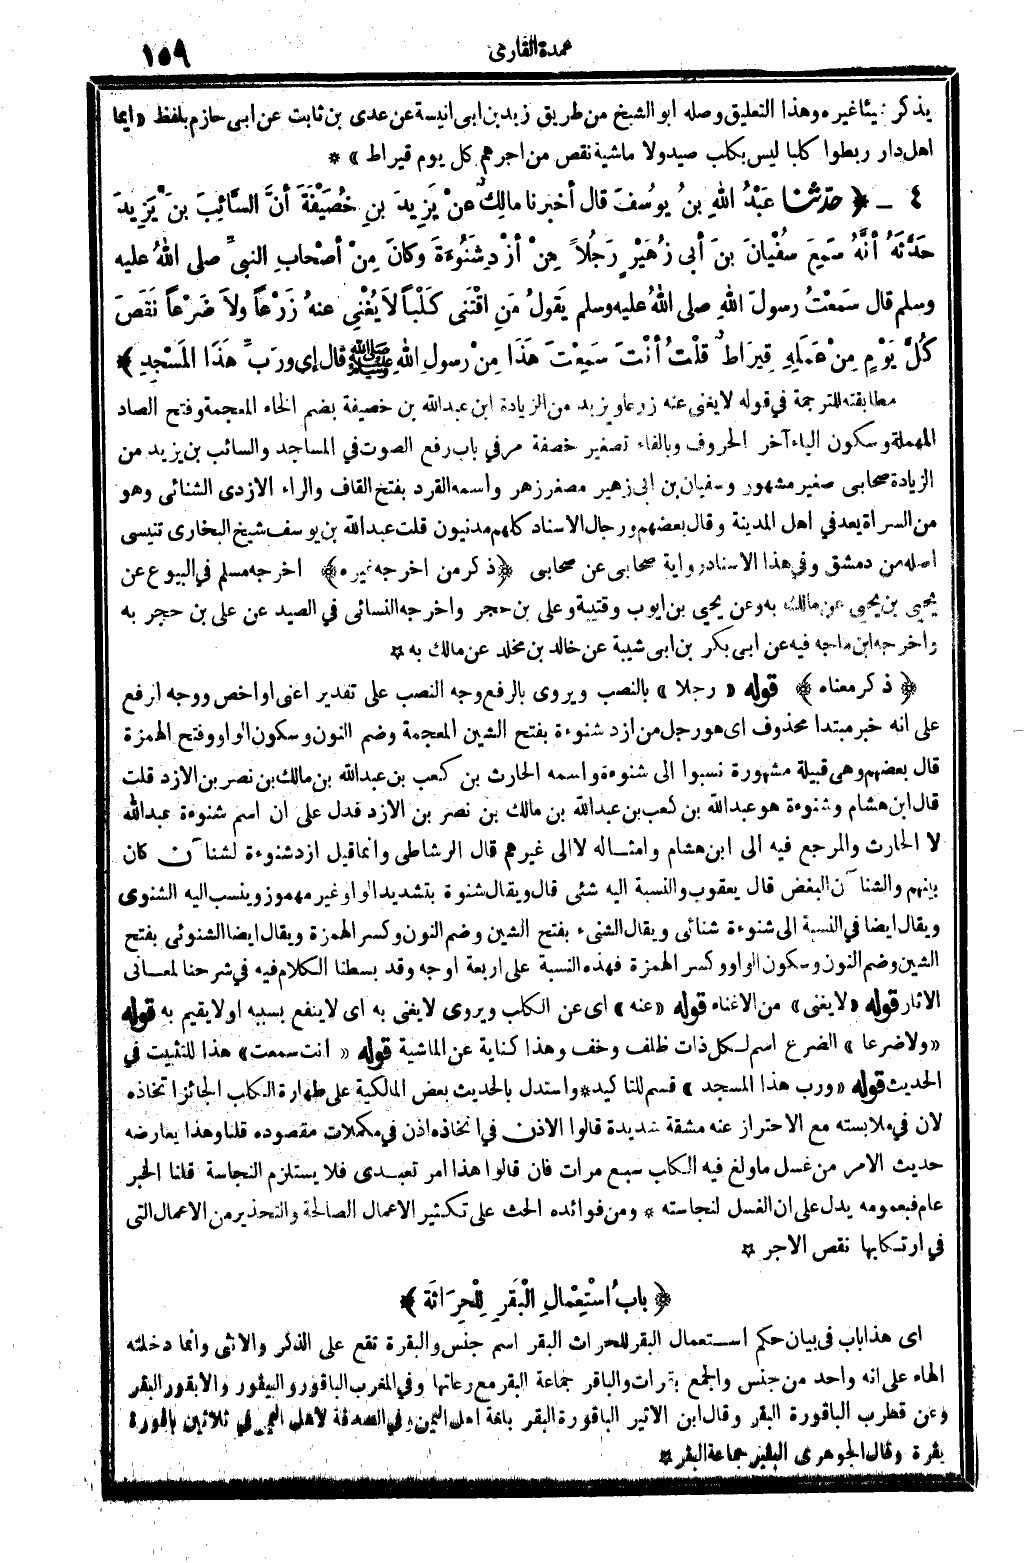 عمدة القارى
١٥٩
يذكر شيئا غيره وهذا التعليق وصله ابو الشيخ من طريق زيد بن ابى انيسة عن عدى بن ثابت عن ابى حازم بلفظ «ايما
اهل دار ربطوا كلبا ليس بكلب صيد ولا ماشية نقص من اجرهم كل يوم قيراط» *
٤ ــ ﴿حدثنا عَبْدُ اللهِ بنُ يوسُفَ قال أخبرنا مالِكٌ عنْ يَزِيدَ بنِ خُصَيْفَةَ أنَّ السَّائِبَ بنَ يَزِيدَ
حَدَّثَهُ أنَّهُ سَمِعَ سُفْيانَ بنَ أبى زُهَيْرٍ رَجُلاً مِنْ أزْدِ شَنُوءَةَ وكانَ مِنْ أصْحابِ النبىِّ صلى اللهُ عليه
وسلم قال سَمعْتُ رسولَ اللهِ صلى اللهُ عليه وسلم يَقولُ مَنِ اقْتَنَى كَلْباً لاَ يُغْنِى عنهُ زَرْعاً ولاَ ضَرْعاً نَقَصَ
كُلَّ يَوْمٍ مِنْ عَمَلِهِ قِيرَاطٌ قلْتُ أنْتَ سَمِعْتَ هَذَا مِنْ رسولِ اللهِ ﷺ قال إى ورَبِّ هَذَا المَسْجِدِ﴾
مطابقته للترجمة فى قوله لا يغنى عنه زرعا ويزيد من الزيادة ابن عبدالله بن خصيفة بضم الخاء المعجمة وفتح الصاد
المهملة وسكون الياء آخر الحروف وبالفاء تصغير خصفة مر فى باب رفع الصوت فى المساجد والسائب بن يزيد من
الزيادة صحابى صغير مشهور وسفيان بن ابى زهير مصغر زهر واسمه القرد بفتح القاف والراء الازدى الشنائى وهو
من السراة يعد فى اهل المدينة وقال بعضهم ورجال الاسناد كلهم مدنيون قلت عبدالله بن يوسف شيخ البخارى تنيسى
اصله من دمشق وفى هذا الاسناد رواية صحابى عن صحابى ﴿ذكر من اخرجه غيره﴾ اخرجه مسلم فى البيوع عن
يحيى بن يحيى عن مالك به وعن يحيى بن ايوب وقتيبة وعلى بن حجر واخرجه النسائى فى الصيد عن على بن حجر به
واخرجه ابن ماجه فيه عن ابى بكر بن ابى شيبة عن خالد بن مخلد عن مالك به *
﴿ذكر معناه﴾ قوله «رجلا» بالنصب ويروى بالرفع وجه النصب على تقدير اعنى او اخص ووجه الرفع
على انه خبر مبتدا محذوف اى هو رجل من ازد شنوءة بفتح الشين المعجمة وضم النون وسكون الواو وفتح الهمزة
قال بعضهم وهى قبيلة مشهورة نسبوا الى شنوءة واسمه الحارث بن كعب بن عبدالله بن مالك بن نصر بن الازد قلت
قال ابن هشام وشنوءة هو عبدالله بن كعب بن عبدالله بن مالك بن نصر بن الازد فدل على ان اسم شنوءة عبدالله
لا الحارث والمرجع فيه الى ابن هشام وامثاله لا الى غيرهم قال الرشاطى وانما قيل ازد شنوءة لشنآن كان
بينهم والشنآن البغض قال يعقوب والنسبة اليه شئى قال ويقال شنوة بتشديد الواو غير مهموز وينسب اليه الشنوى
ويقال ايضا فى النسبة الى شنوءة شنائى ويقال الشنىء بفتح الشين وضم النون وكسر الهمزة ويقال ايضا الشنوئى بفتح
الشين وضم النون وسكون الواو وكسر الهمزة فهذه النسبة على اربعة اوجه وقد بسطنا الكلام فيه فى شرحنا لمعانى
الاثار قوله «لا يغنى» من الاغناء قوله «عنه» اى عن الكلب ويروى لا يغنى به اى لا ينفع بسببه او لا يقيم به قوله
«ولا ضرعا» الضرع اسم لكل ذات ظلف وخف وهذا كناية عن الماشية قوله «انت سمعت» هذا للتثبيت فى
الحديث قوله «ورب هذا المسجد» قسم للتاكيد * واستدل بالحديث بعض المالكية على طهارة الكلب الجائز اتخاذه
لان فى ملابسته مع الاحتراز عنه مشقة شديدة قالوا الاذن فى اتخاذه اذن فى مكملات مقصوده قلنا وهذا يعارضه
حديث الامر من غسل ما ولغ فيه الكلب سبع مرات فان قالوا هذا امر تعبدى فلا يستلزم النجاسة قلنا الخبر
عام فبعمومه يدل على ان الغسل لنجاسته * ومن فوائده الحث على تكثير الاعمال الصالحة والتحذير من الاعمال التى
فى ارتكابها نقص الاجر *
﴿بابُ اسْتِعْمالِ الْبَقَرِ لِلْحِرَاثَةِ﴾
اى هذا باب فى بيان حكم استعمال البقر للحراث البقر اسم جنس والبقرة تقع على الذكر والانثى وانما دخلته
الهاء على انه واحد من جنس والجمع بقرات والباقر جماعة البقر مع رعاتها وفى المغرب الباقور والبيقور والابقور البقر
وعن قطرب الباقورة البقر وقال ابن الاثير الباقورة البقر بلغة اهل اليمن وفى الصدقة لاهل اليمن فى ثلاثين باقورة
بقرة وقال الجوهرى البقير جماعة البقر *